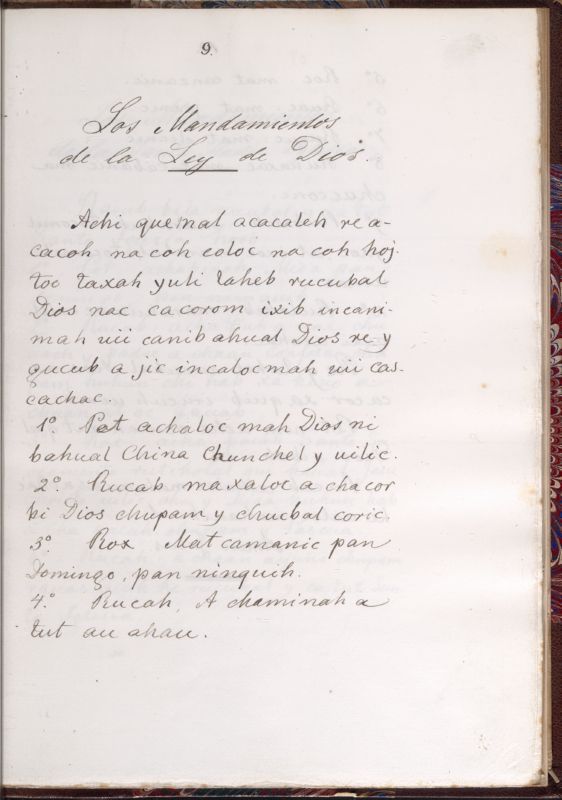 9.
Los Mandamientos
de la Ley de Dios.
Achi quemal acacaleh re a-
cacoh na coh coloc na coh hoj.
toc taxah y uli laheb rucubal
Dios nac cacorom ixib incani-
mah uii canibahual Dios re y
qucub a jic incalocmah uii cas-
cachac.
1º. Pet achaloc mah Dios ni
bahual China Chunchel y uilic.
2º. Rucab maxaloc a chacor
bi Dios chupam y chucbal coric.
3º. Rox Mat camanic pan
Domingo, pan ninquih.
4º. Rucah, A chaminah a
tut au ahau.